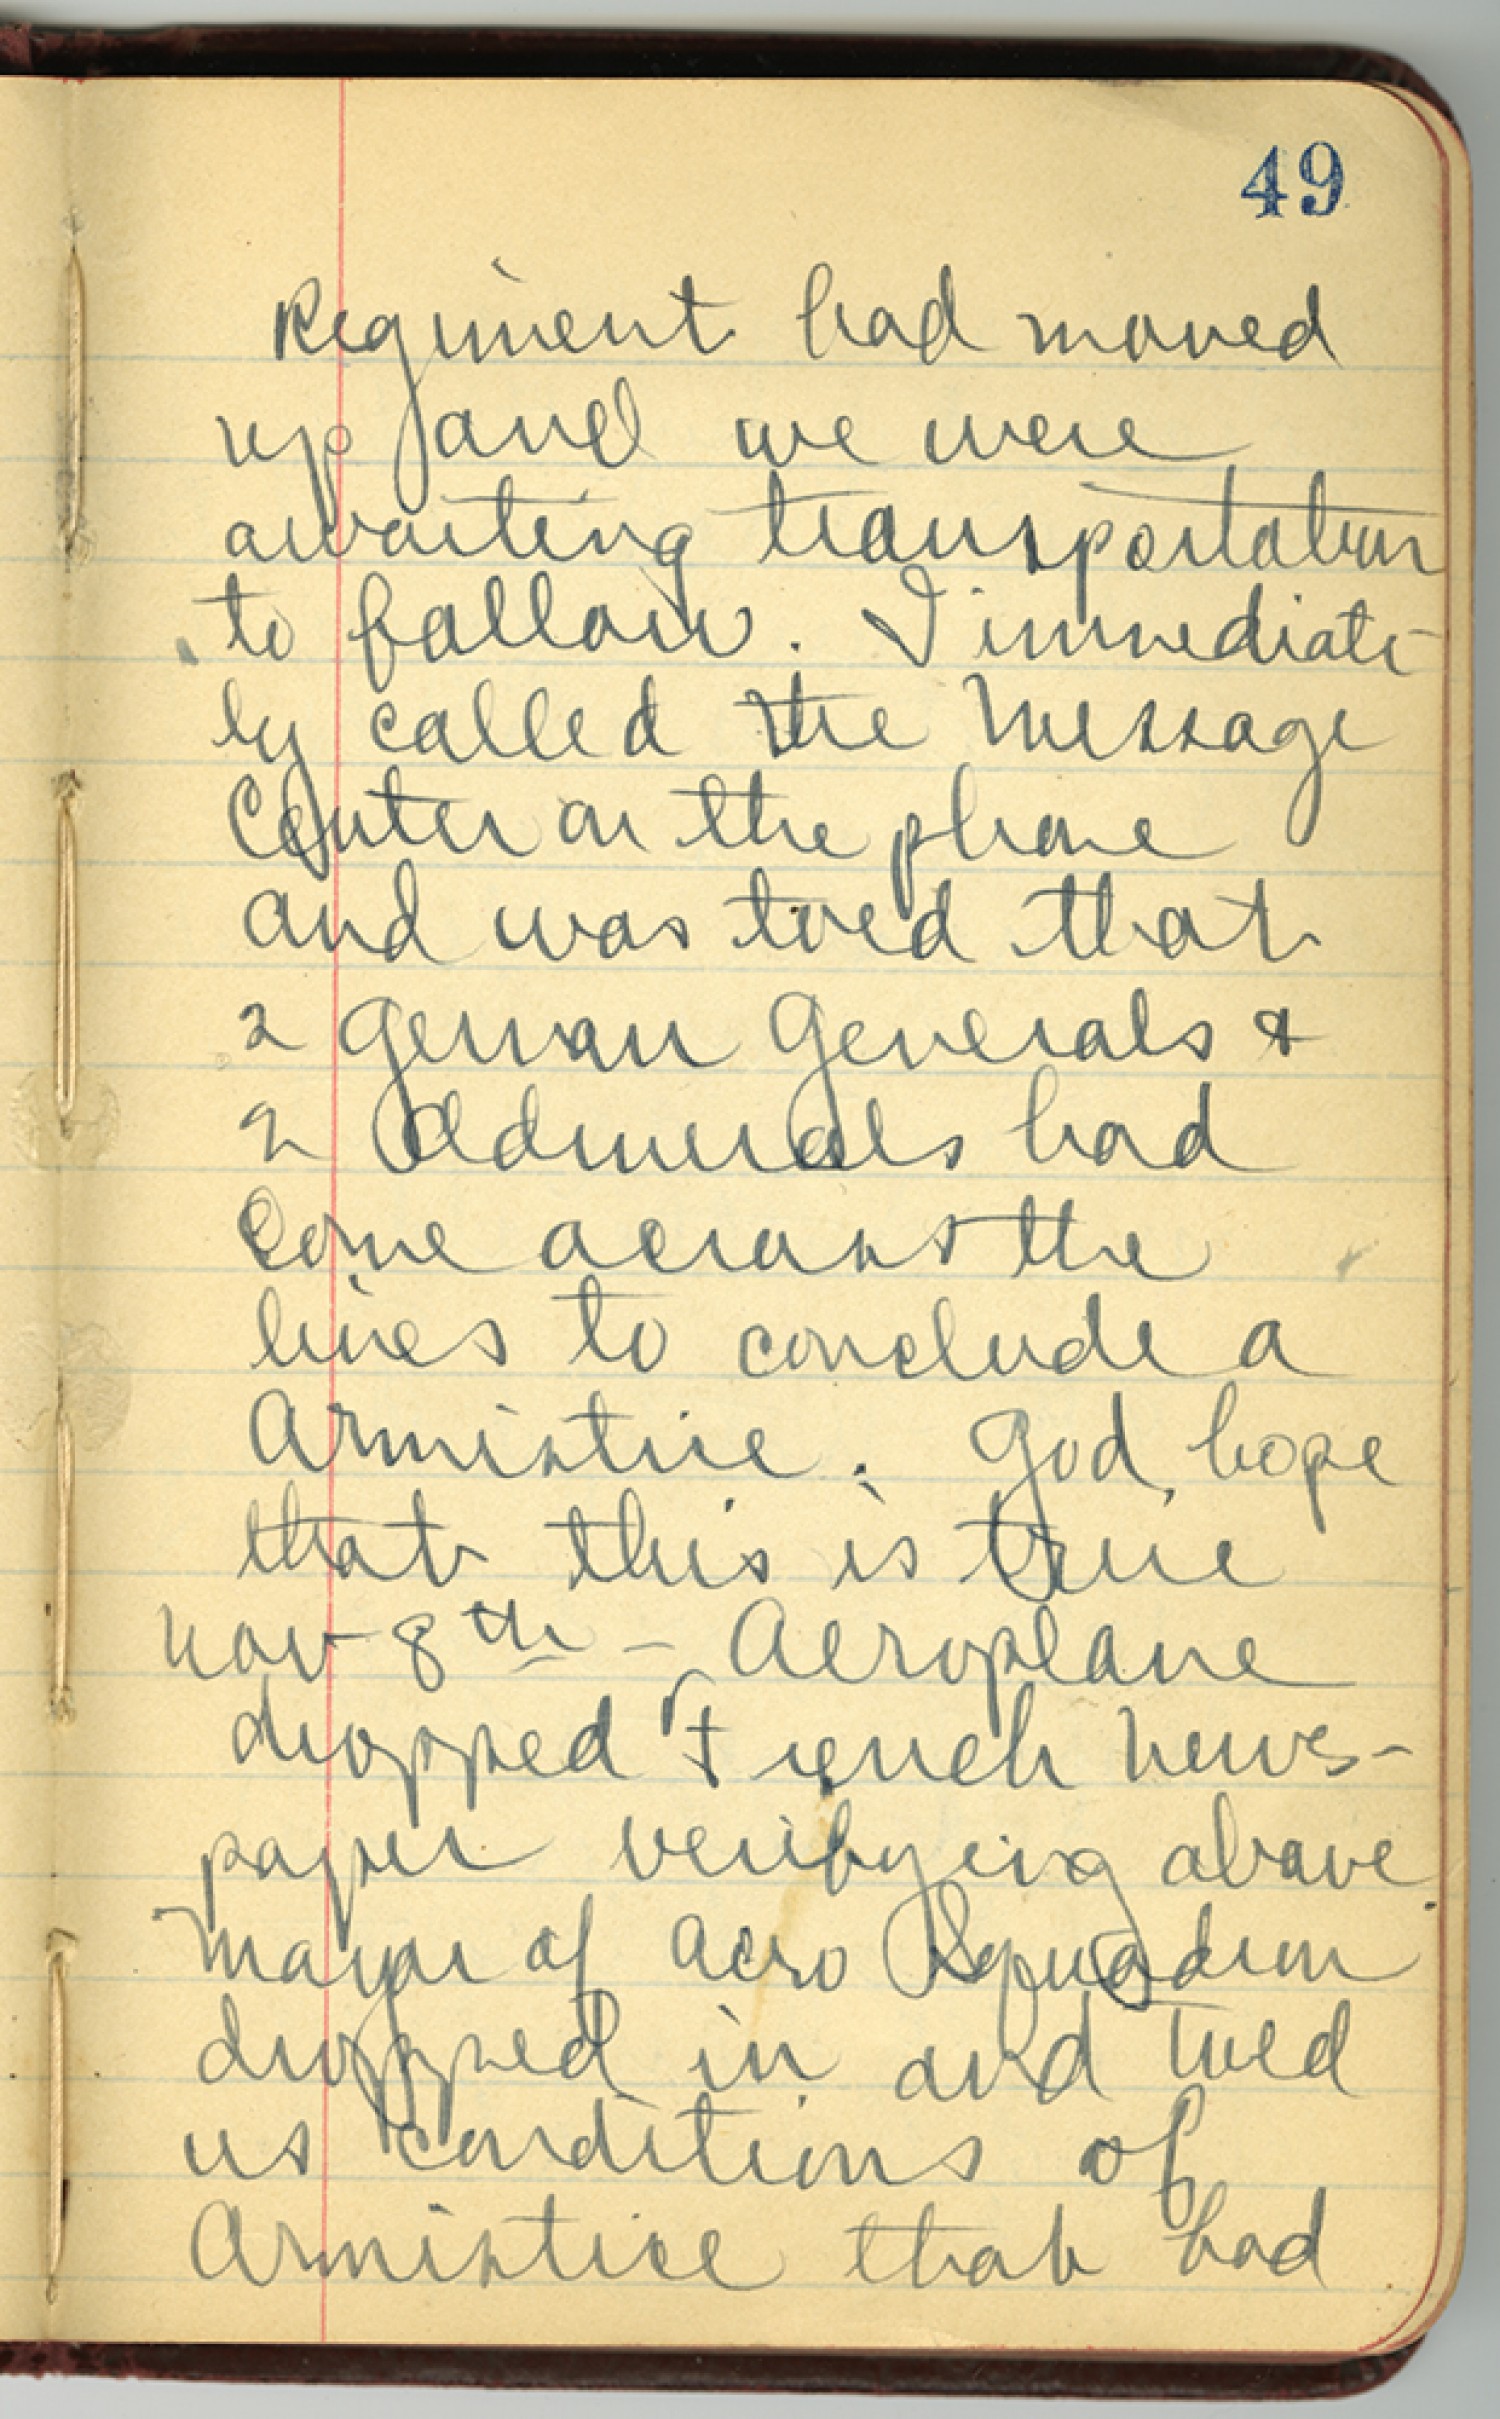 49
Regiment had moved
up and we were
awaiting transportation
to follow. I immediate
ly called the Message
Center on the phone
and was toed that
2 German Generals &
2 Admerals had
Come across the
lines to conclude a
Armistice. God, hope
that this is true
Nov 8th - Aeroplane
dropped French news-
paper verifying above.
Major of Aero Squadron
dropped in and toed
us conditions of
Armistice that had